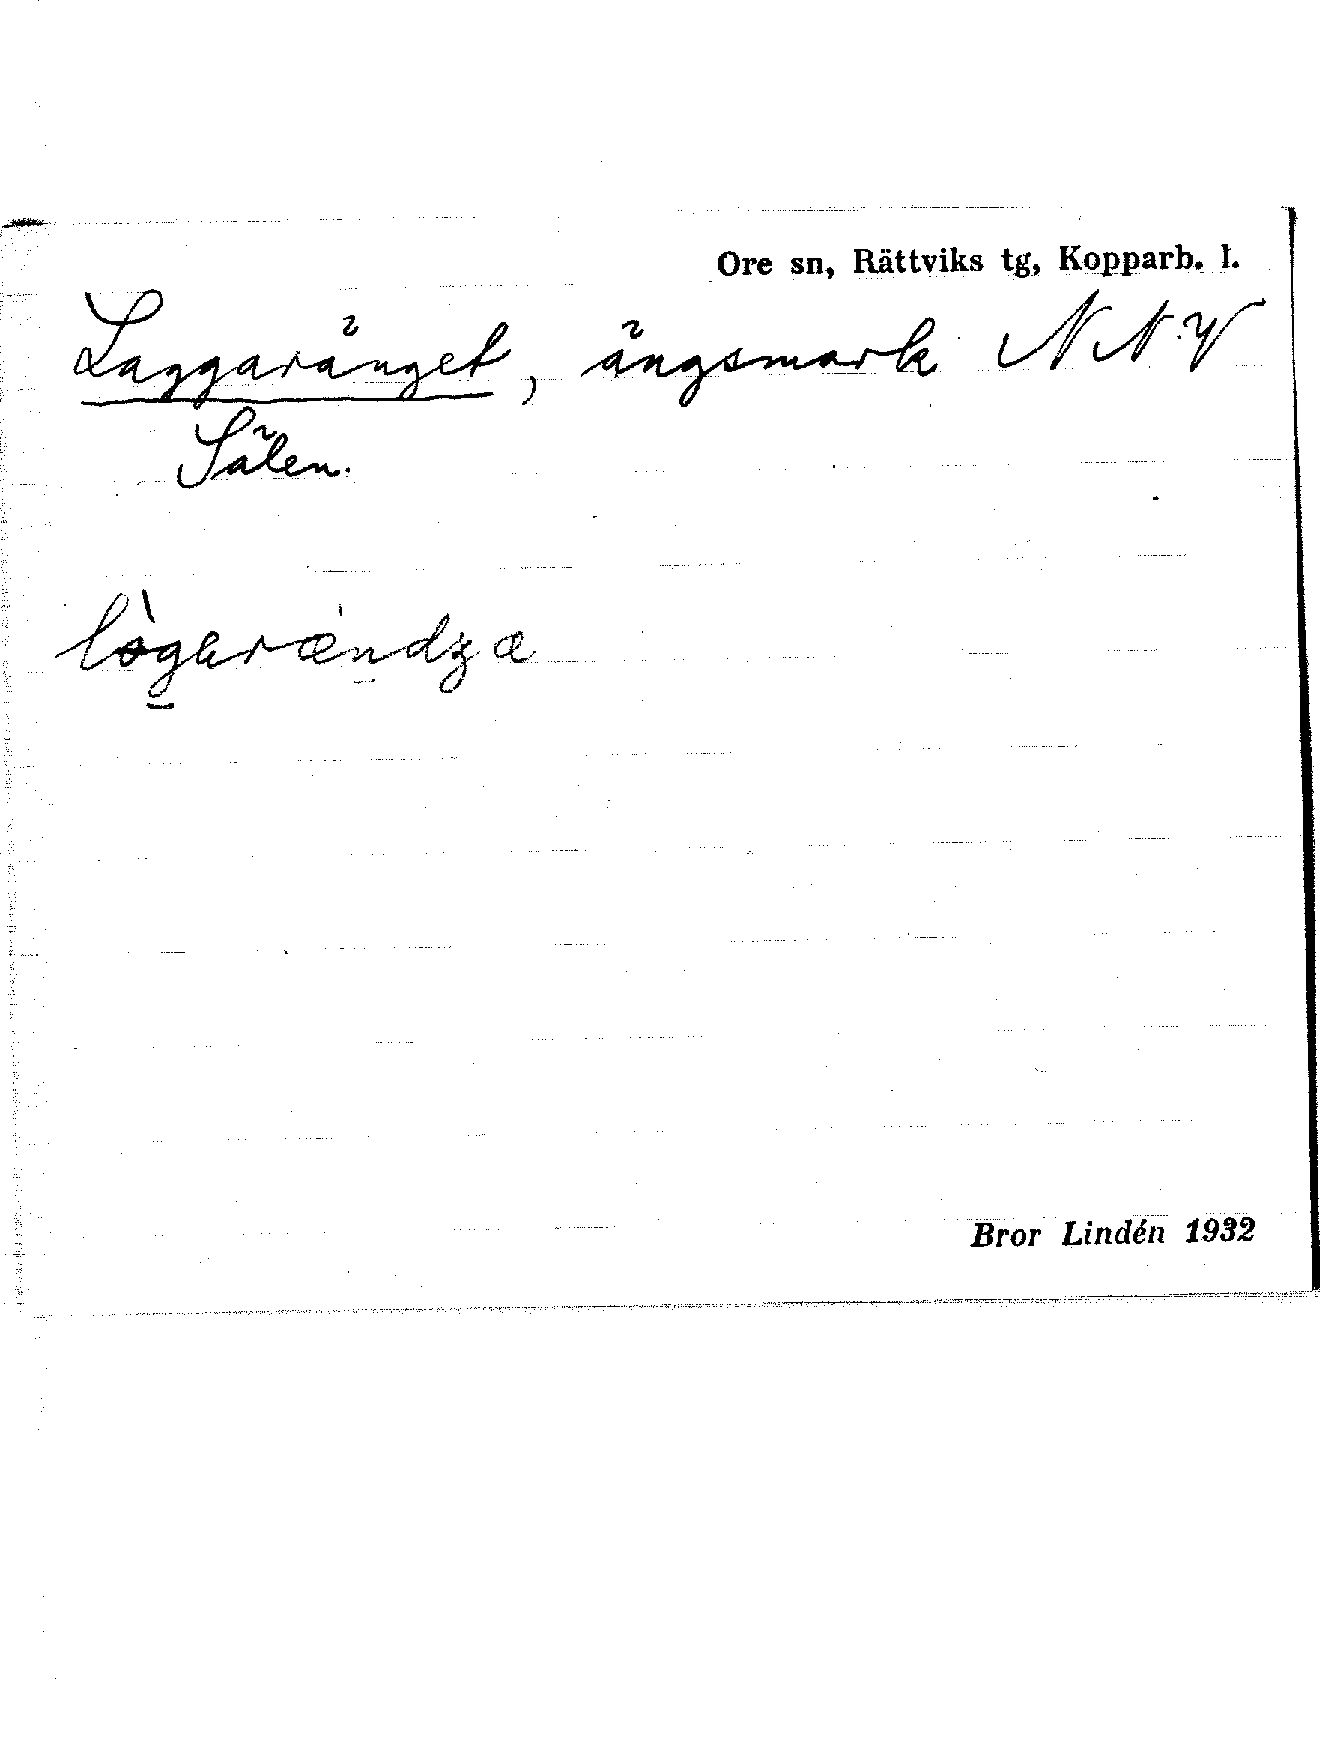 Ore sn, Rättviks tg, Kopparb. l.
Laggaränget, ängsmark NNV
Sälen.
lògærændʒæ
Bror Lindén 1932